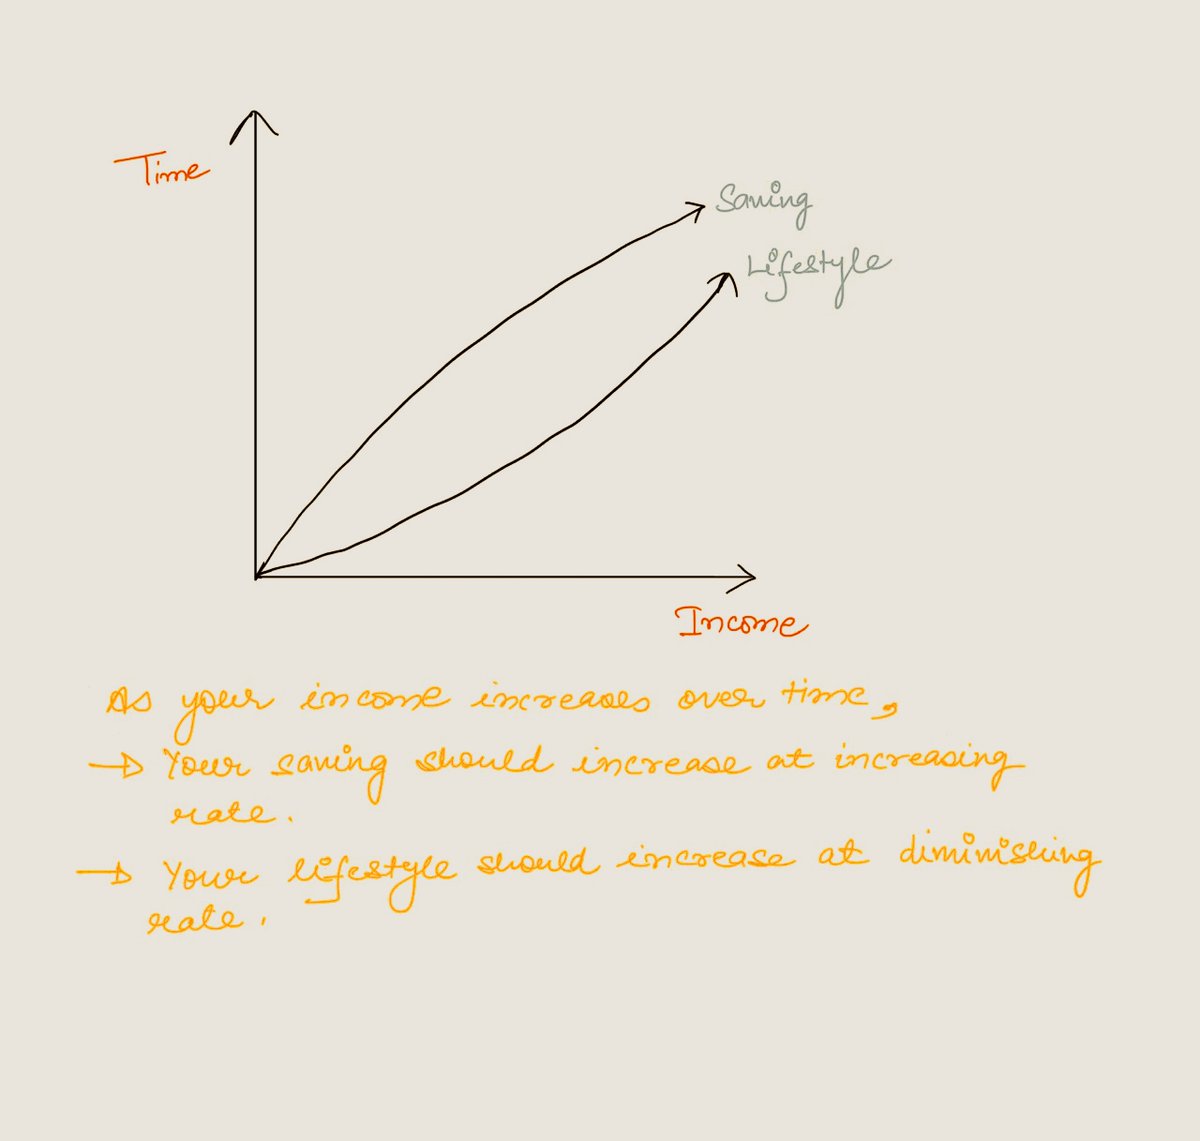 Time
Saving
Lifestyle
Income
As your income increases over time,
→ Your saving should increase at increasing
rate.
→ Your lifestyle should increase at diminishing
rate.